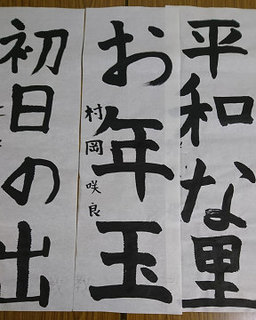 平和な里
お年玉
村岡咲良
初日の出